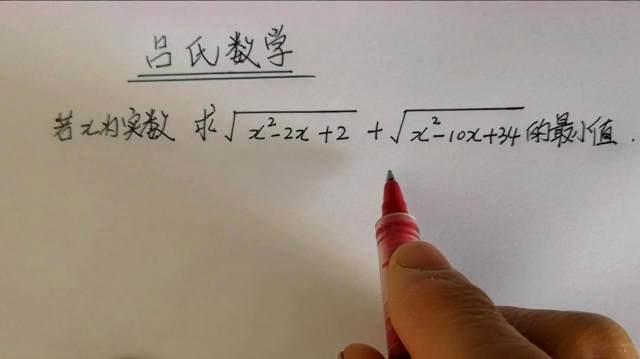 吕氏数学
若x为实数 求√(x²-2x+2) + √(x²-10x+34) 的最小值.